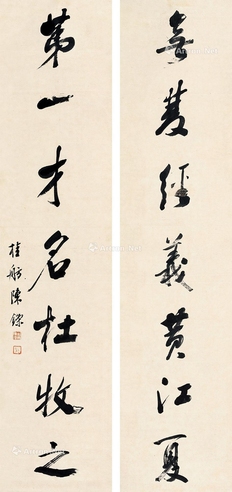 無雙經義黃江夏
第一才名杜牧之
桂舫陳